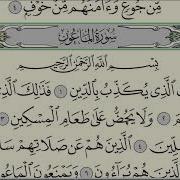 مِّن جُوعٍ وَءَامَنَهُم مِّنْ خَوْفٍ ٤
سُورَةُ المَاعُونِ
بِسْمِ اللَّهِ الرَّحْمَٰنِ الرَّحِيمِ
الَّذِي يُكَذِّبُ بِالدِّينِ ١ فَذَٰلِكَ الَّذِ
مَ ٢ وَلَا يَحُضُّ عَلَىٰ طَعَامِ الْمِسْكِينِ ٣
لِّينَ ٤ الَّذِينَ هُمْ عَن صَلَاتِهِمْ سَا
الَّذِينَ هُمْ يُرَآءُونَ ٦ وَيَمْنَعُونَ الْمَاعُو